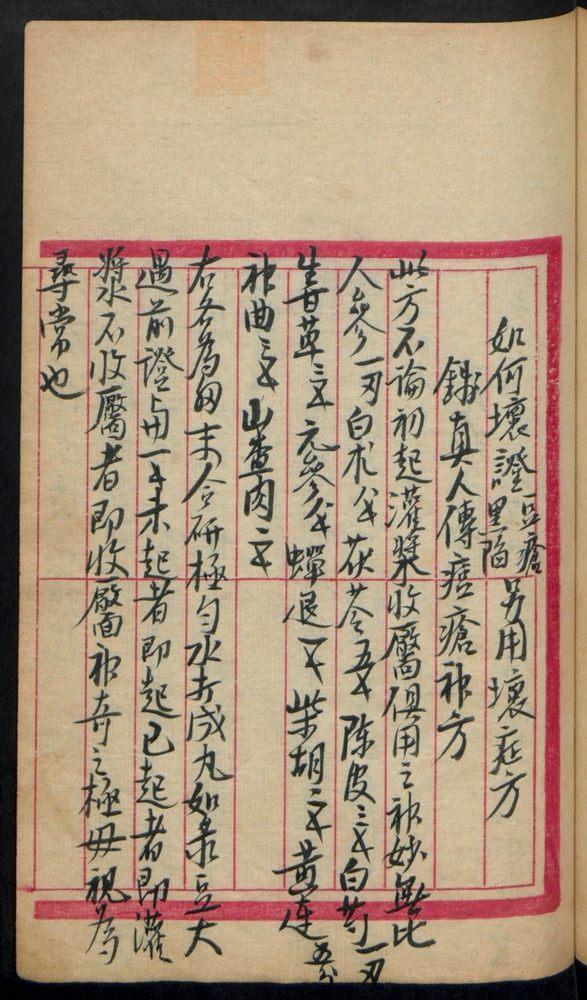 如何壞證豆瘡黑陷另用壞症方
真人傳痘瘡神方
此方不論初起灌漿收靨俱用之神妙無比
人參一刃白朮茯苓五陳皮三白芍一刃
生甘草三元參蟬退一柴胡二黃連五分
神曲三山查肉二
右各為細末合研極勻水打成丸如彔豆大
遇前證与用一未起者即起已起者即灌
漿不收靨者即收靨神奇之極毋視為
尋常也